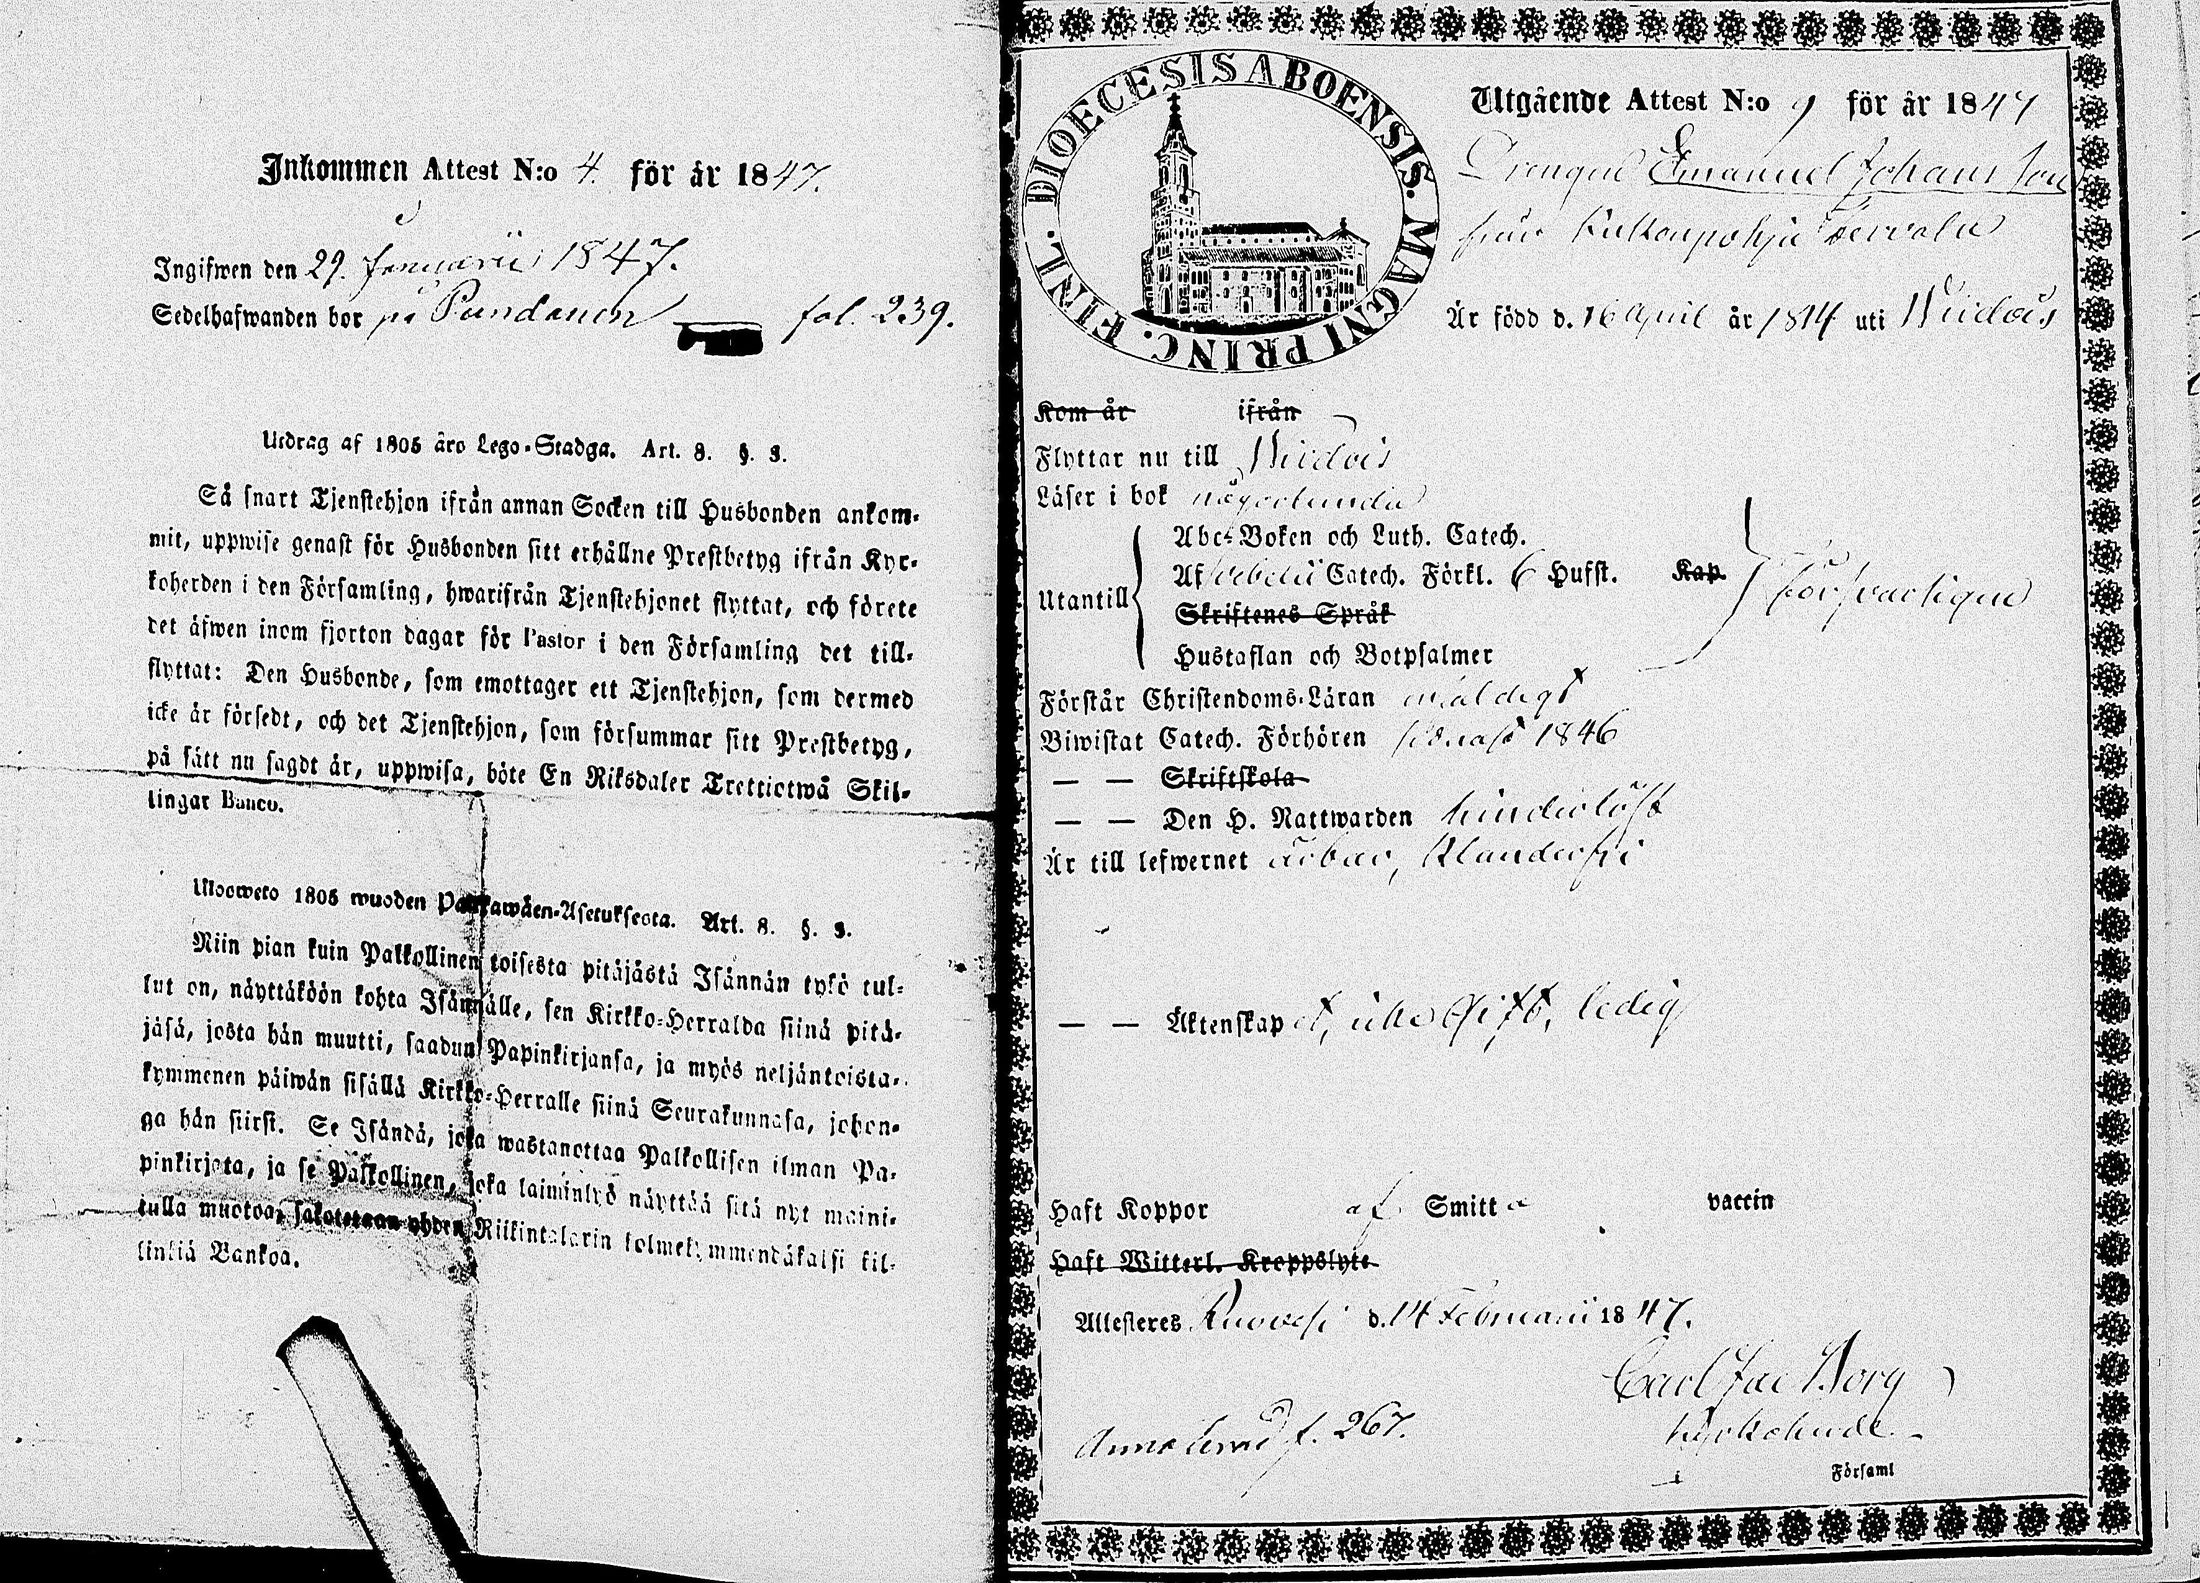 Inkommen Attest N:o 4. för år 1847.
Ingifwen den 29. Januarii 1847.
Sedelhafwanden bor på fol. 239.
Utdrag af 1805 års Lego-Stadga. Art. 8. §. 3.
Så snart Tjenstehjon ifrån annan Socken till Husbonden ankom-
mit, uppwise genast för Husbonden sitt erhållne Prestbetyg ifrån Kyr-
koherden i den Församling, hwarifrån Tjenstehjonet flyttat, och förete
det äfwen inom fjorton dagar för Pastor i den Församling det till-
flyttat: Den Husbonde, som emottager ett Tjenstehjon, som dermed
icke är försedt, och det Tjenstehjon, som försummar sitt Prestbetyg,
på sätt nu sagdt är, uppwisa, böte En Riksdaler Trettiotwå Skil-
lingar Banco.
Uloosweto 1805 wuoden Palkawäen-Asetuksesta. Art. 8. §. 3.
Niin pian kuin Palkollinen toisesta pitäjästä Isännän tykö tul-
lut on, näyttäköön kohta Isännälle, sen Kirkko-Herralda siinä pitä-
jäsä, josta hän muutti, saadun Papinkirjansa, ja myös neljäntoista-
kymmenen päiwän sisällä Kirkko-Herralle siinä Seurakunnasa, johon-
ga hän siirsi. Se Isändä, joka wastanottaa Palkollisen ilman Pa-
pinkirjata, ja se Palkollinen, joka laiminlyö näyttää sitä nyt maini-
tulla muotoa, sakotetaan yhden Riikintalarin kolmekymmendäkaksi kil-
linkiä Bankoa.
DIOECESIS ABOENSIS. MAGNI PRINC. FINL.
Utgående Attest N:o 9 för år 1847
Drengen Emanuel Johansson
från
Är född d. 16 April år 1814 uti Wirdois
Kom år ifrån
Flyttar nu till Wirdois
Läser i bok någorlunda
Abc-Boken och Luth. Catech.
Af Svebelii Catech. Förkl. 6 Hufst. Kap.
Utantill försvarligen
Skriftenes Språk
Hustaflan och Botpsalmer
Förstår Christendoms-Läran
Biwistat Catech. Förhören senast 1846
— — Skriftskola
— — Den H. Nattwarden hinderlöst
Är till lefwernet ärbar, klanderfri
— — Äktenskapet, icke gift, ledig
Haft Koppor af Smitta vaccin
Haft Witterl. Kroppslyte
Attesteres Ruovesi d. 14 Februarii 1847.
Carl Jac Borg
Kyrkoherde
Annoterad f. 267.
i Församl